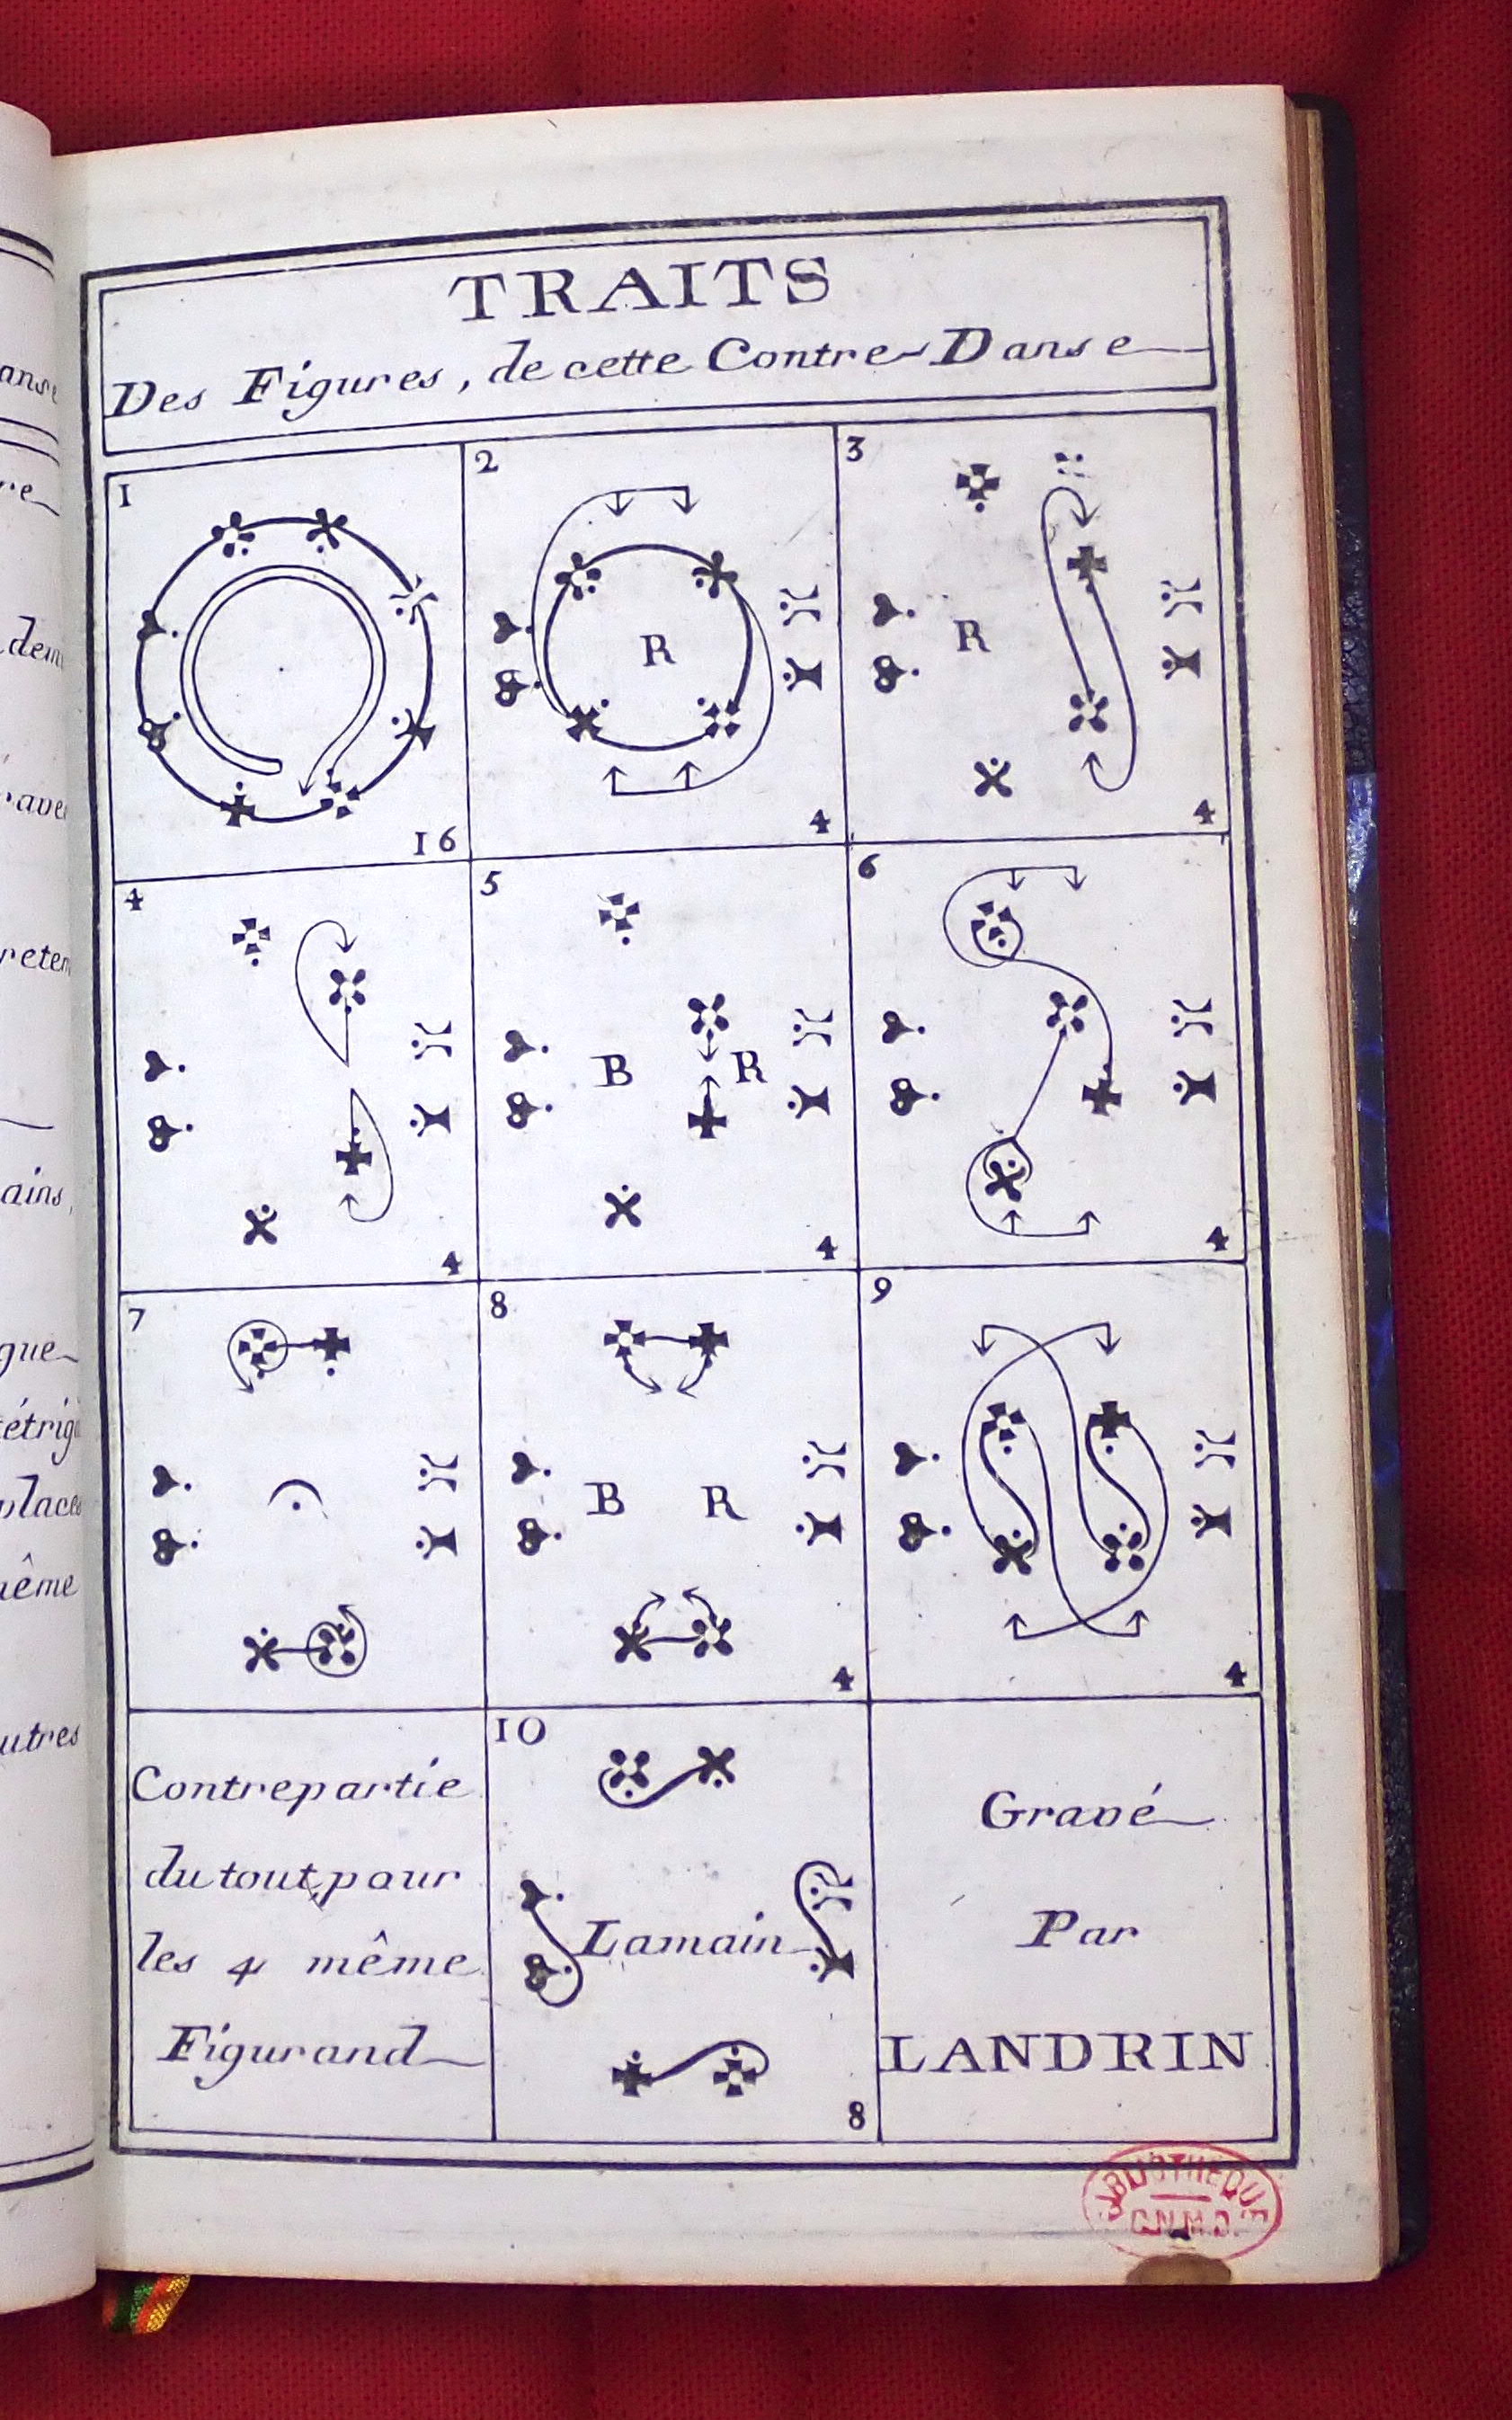 TRAITS
Des Figures, de cette Contre Danse
1
16
2
R
4
3
R
4
4
4
5
B R
4
6
4
7
8
B R
4
9
4
Contrepartie
du tout pour
les 4 même
Figurand
10
Lamain
8
Gravé
Par
LANDRIN
BIBLIOTHEQUE
C.N.M.D.
ans
re
dem
rave
reten
ains,
gue
tétrig
place
même
utres